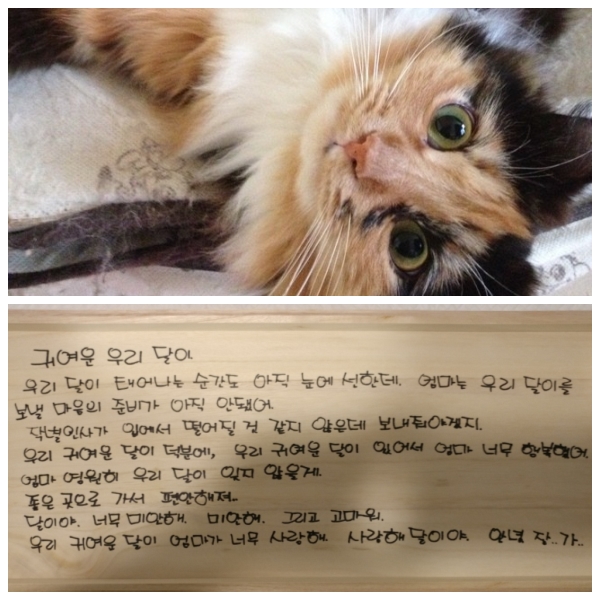 귀여운 우리 달이
우리 달이 태어나는 순간도 아직 눈에 선한데. 엄마는 우리 달이를
보낼 마음의 준비가 아직 안됐어.
작별인사가 입에서 떨어질 것 같지 않은데 보내줘야겠지.
우리 귀여운 달이 덕분에, 우리 귀여운 달이 있어서 엄마 너무 행복했어.
엄마 영원히 우리 달이 잊지 않을게.
좋은 곳으로 가서 편안해져..
달이야. 너무 미안해. 미안해. 그리고 고마워.
우리 귀여운 달이 엄마가 너무 사랑해. 사랑해 달이야. 안녕 잘..가..